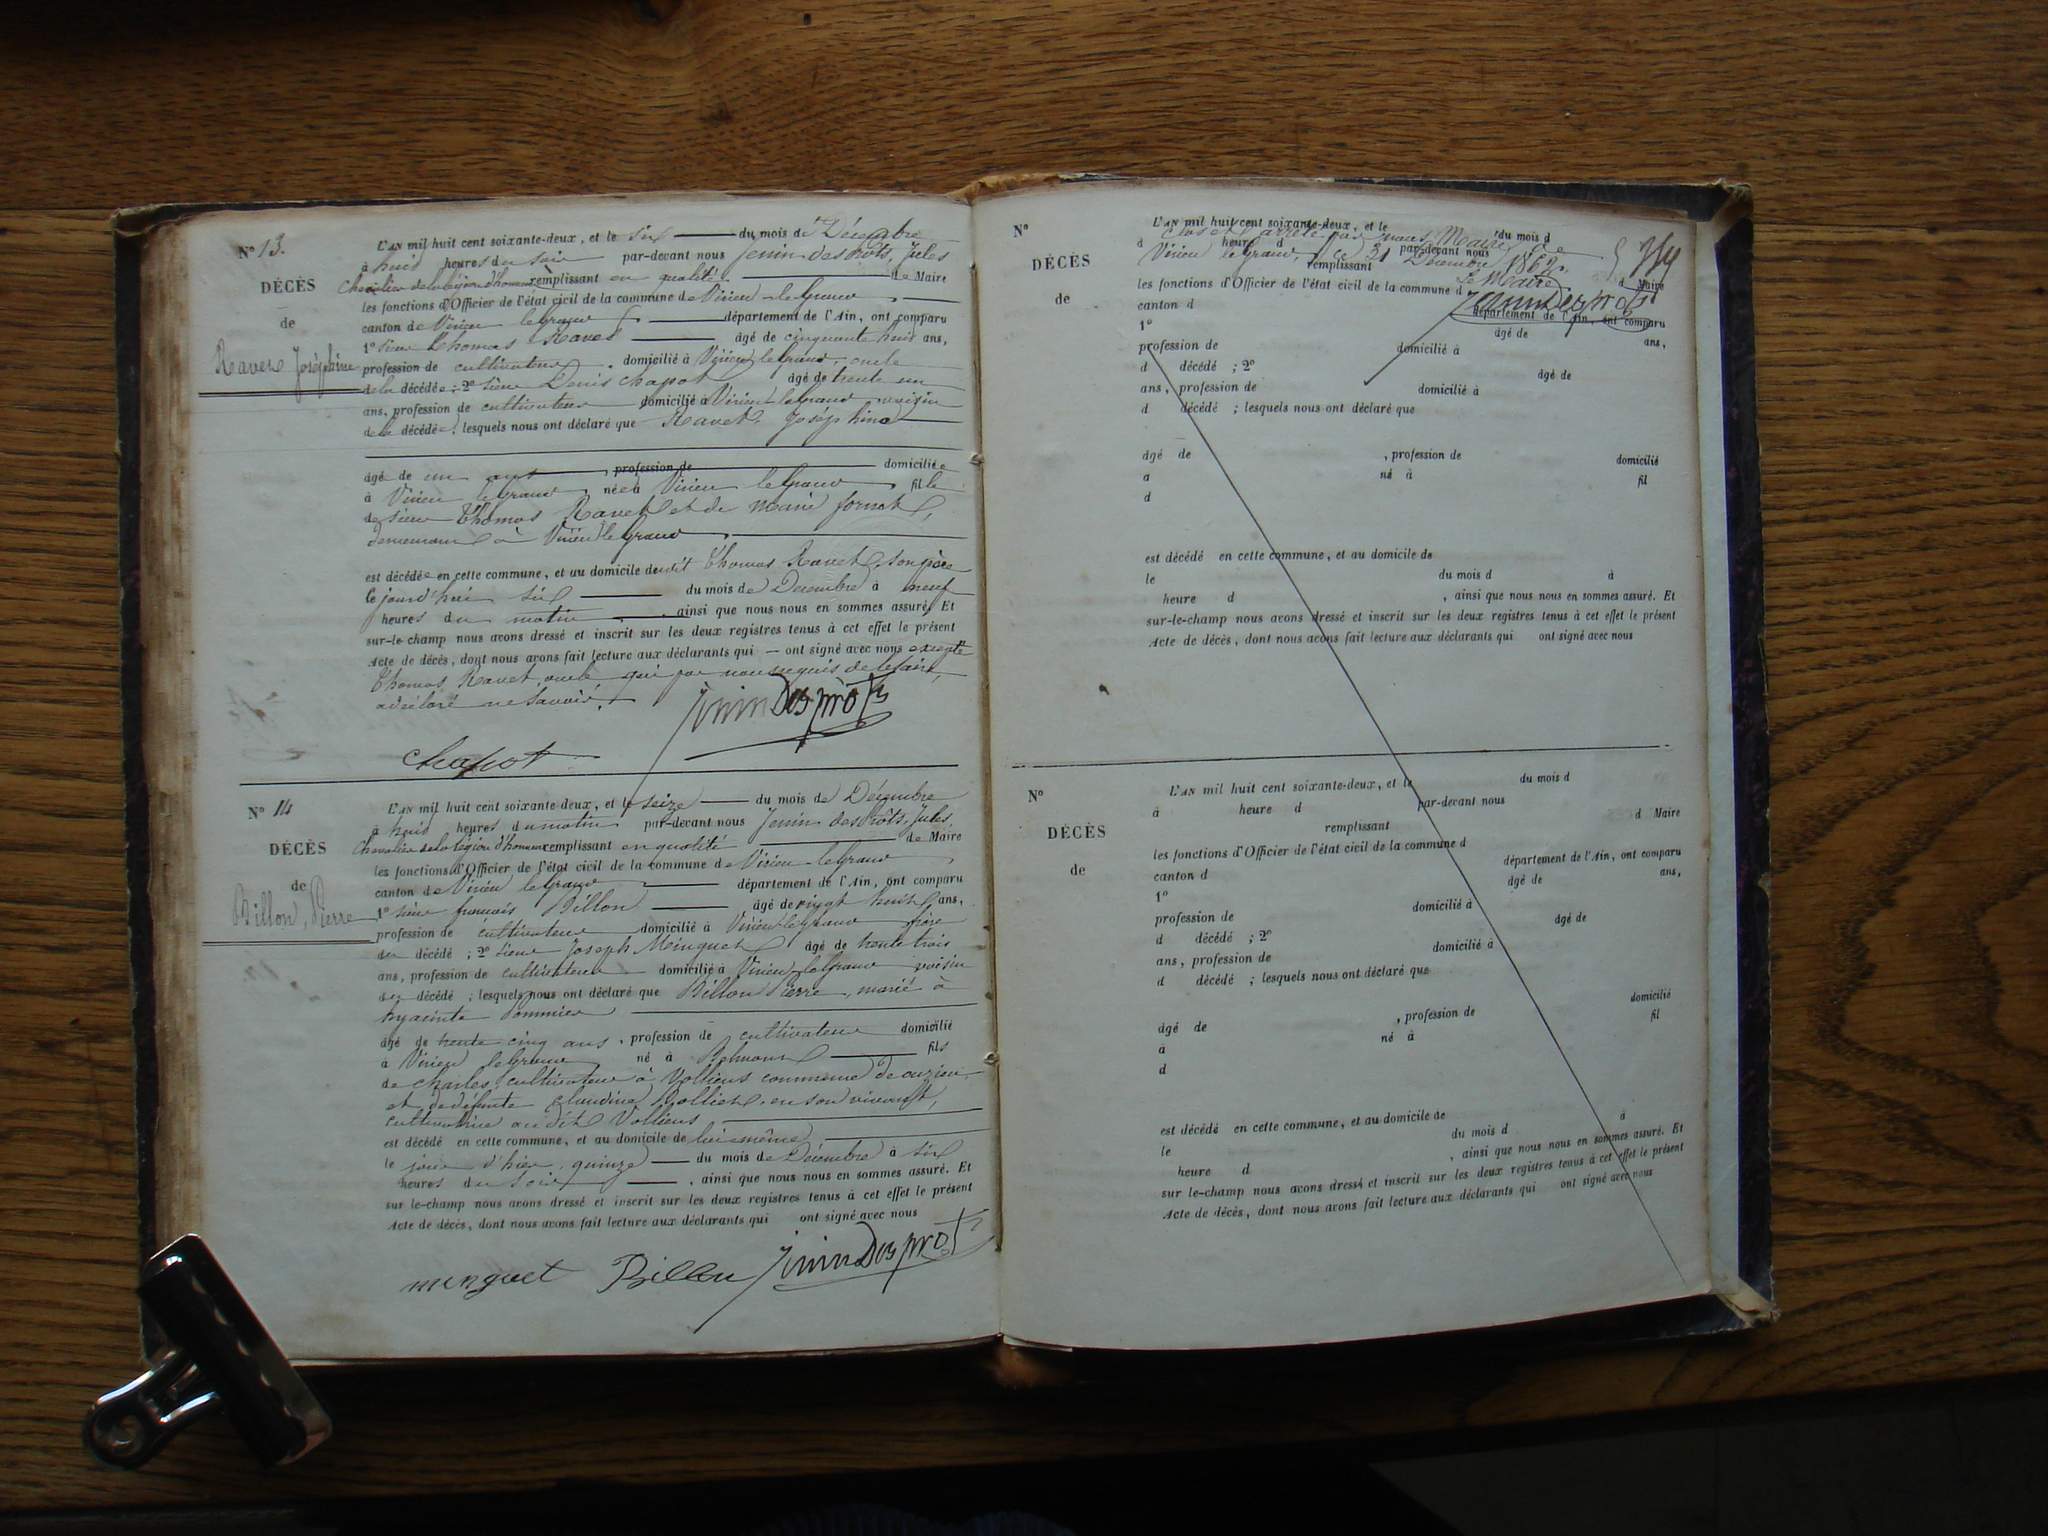 N° 13.
DÉCÈS
de
Ravet Joséphine
L'AN mil huit cent soixante-deux, et le six du mois de Décembre
à huit heures du soir par-devant nous Jenin desprôts, Jules
Chevalier de la légion d'honneur remplissant en qualité de Maire
les fonctions d'Officier de l'état civil de la commune de Virieu-le-Grand
canton de Virieu le grand département de l'Ain, ont comparu
1° sieur Thomas Ravet âgé de cinquante huit ans,
profession de cultivateur domicilié à Virieu le grand, oncle
de la décédée ; 2° sieur Denis Chapot âgé de trente un
ans, profession de cultivateur domicilié à Virieu le grand voisin
de la décédée ; lesquels nous ont déclaré que Ravet, Joséphine
âgé de un ans, profession de domiciliée
à Virieu le grand, née à Virieu le Grand, fille
de sieur Thomas Ravet et de Marie fornet,
demeurant à Virieu le Grand,
est décédée en cette commune, et au domicile dudit Thomas Ravet, son père
le jourd'hui six du mois de Décembre à neuf
heures du matin, ainsi que nous nous en sommes assuré. Et
sur-le-champ nous avons dressé et inscrit sur les deux registres tenus à cet effet le présent
Acte de décès, dont nous avons fait lecture aux déclarants qui — ont signé avec nous excepté
Thomas Ravet, oncle qui par nous requis de le faire,
a déclaré ne savoir.
Jenin Desprôts
Chapot
N° 14
DÉCÈS
de
Billon, Pierre
L'AN mil huit cent soixante-deux, et le seize du mois de Décembre
à huit heures du matin par-devant nous Jenin desprôts, Jules,
Chevalier de la légion d'honneur remplissant en qualité de Maire
les fonctions d'Officier de l'état civil de la commune de Virieu-le Grand
canton de Virieu le grand département de l'Ain, ont comparu
1° sieur françois Billon âgé de vingt huit ans,
profession de cultivateur domicilié à Virieu le grand frère
du décédé ; 2° sieur Joseph Minguet âgé de trente trois
ans, profession de cultivateur domicilié à Virieu le Grand voisin
du décédé ; lesquels nous ont déclaré que Billon Pierre, marié à
hyacinte Pommier
âgé de trente cinq ans, profession de cultivateur domicilié
à Virieu le Grand né à Belmont fils
de Charles, cultivateur à Volliens commune de cuzieu
et de défunte claudine Rolliet, en son vivant,
cultivatrice au dit Volliens,
est décédé en cette commune, et au domicile de lui-même
le jour d'hier, quinze du mois de Décembre à six
heures du soir, ainsi que nous nous en sommes assuré. Et
sur le-champ nous avons dressé et inscrit sur les deux registres tenus à cet effet le présent
Acte de décès, dont nous avons fait lecture aux déclarants qui ont signé avec nous
minguet Billon Jenin Desprots
N°
DÉCÈS
de
L'AN mil huit cent soixante-deux, et le du mois d
Clos et arrêté par nous Maire de
à heure d par-devant nous
Virieu le Grand, ce 31 Décembre 1862.
remplissant d Maire
Le Maire
les fonctions d'Officier de l'état civil de la commune d
Jenin Desprots
canton d département de l'Ain, ont comparu
1° âgé de ans,
profession de domicilié à
d décédé ; 2° âgé de
ans, profession de domicilié à
d décédé ; lesquels nous ont déclaré que
âgé de , profession de domicilié
à né à fil
d
est décédé en cette commune, et au domicile de
le du mois d à
heure d , ainsi que nous nous en sommes assuré. Et
sur-le-champ nous avons dressé et inscrit sur les deux registres tenus à cet effet le présent
Acte de décès, dont nous avons fait lecture aux déclarants qui ont signé avec nous
N°
DÉCÈS
de
L'AN mil huit cent soixante-deux, et le du mois d
à heure d par-devant nous
remplissant d Maire
les fonctions d'Officier de l'état civil de la commune d
canton d département de l'Ain, ont comparu
1° âgé de ans,
profession de domicilié à
d décédé ; 2° âgé de
ans, profession de domicilié à
d décédé ; lesquels nous ont déclaré que
âgé de , profession de domicilié
à né à fil
d
est décédé en cette commune, et au domicile de
le du mois d à
heure d , ainsi que nous nous en sommes assuré. Et
sur le-champ nous avons dressé et inscrit sur les deux registres tenus à cet effet le présent
Acte de décès, dont nous avons fait lecture aux déclarants qui ont signé avec nous